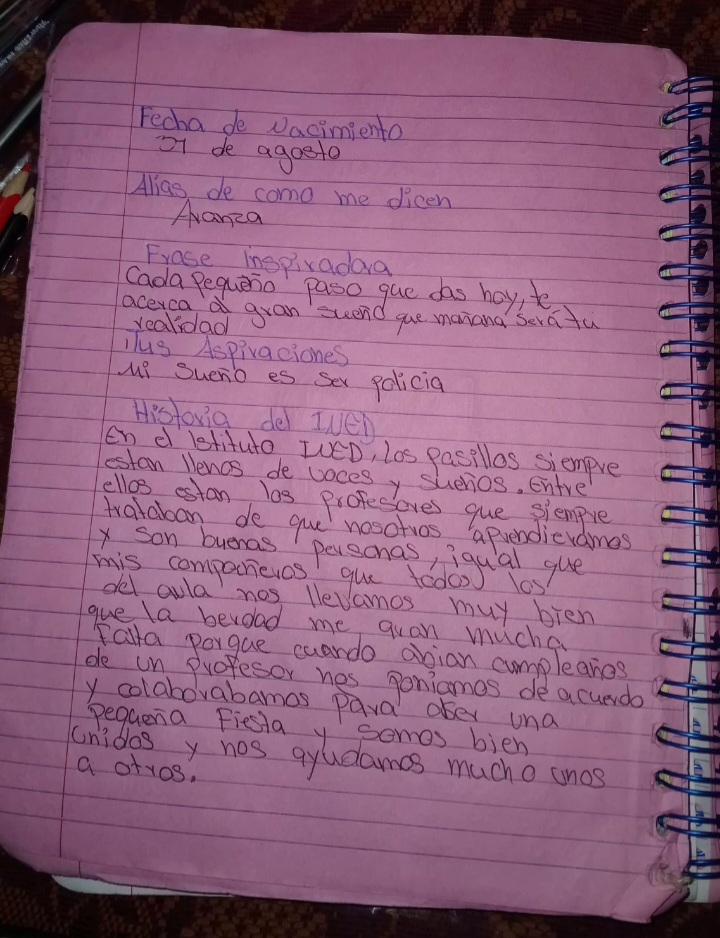 Fecha de Nacimiento
21 de agosto
Alias de como me dicen
Avanza
Frase inspiradora
Cada pequeño paso que das hoy, te
acerca a gran sueño que mañana será tu
realidad
Tus Aspiraciones
Mi sueño es ser policia
Historia del INED
En el Istituto INED, los pasillos siempre
estan llenos de voces y sueños. Entre
ellos estan los profesores que siempre
trataban de que nosotros aprendieramos
y son buenas personas, igual que
mis compañeros que todos los
del aula nos llevamos muy bien
que la berdad me aran mucha
Falta porque cuando abian cumpleaños
de un profesor nos poniamos de acuerdo
y colaborabamos para aser una
pequeña Fiesta y somos bien
unidos y nos ayudamos mucho unos
a otros.